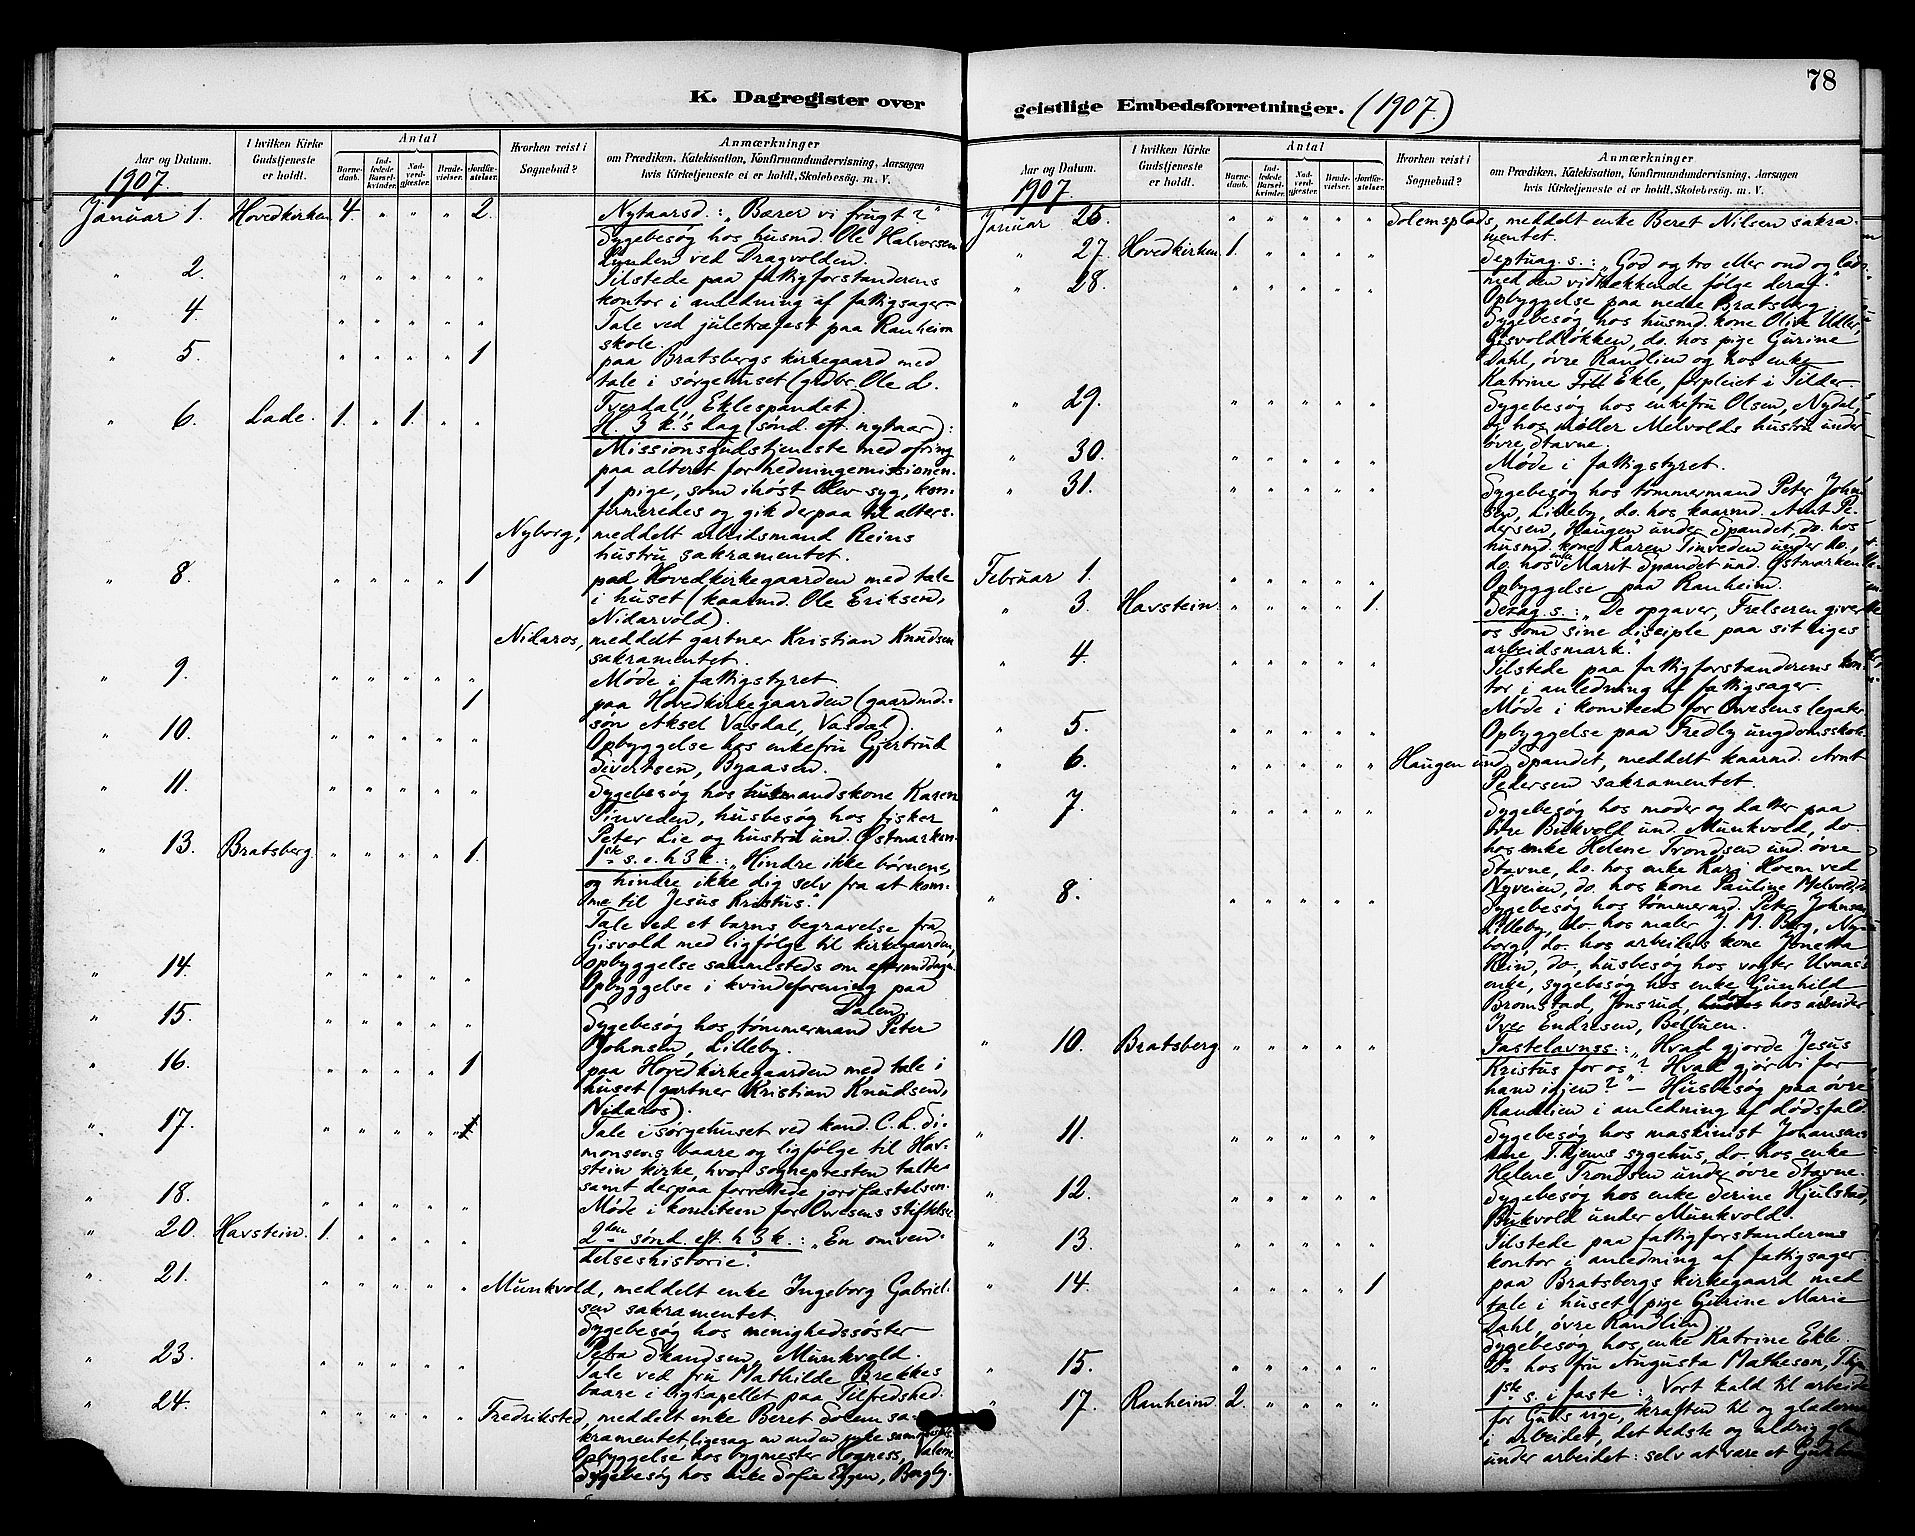 78
K. Dagregister over
geistlige Embedsforretninger. (1907.)
Aar og Datum.
I hvilken Kirke Gudstjeneste er holdt.
Antal
Barnedaab.
Indledede Barselkvinder.
Nadverdgjester.
Brudevielser.
Jordfæstelser.
Hvorhen reist i Sognebud?
Anmærkninger
om Prædiken, Katekisation, Konfirmandundervisning, Aarsagen
hvis Kirketjeneste ei er holdt, Skolebesøg. m. V.
1907.
Januar 1. Hovedkirken 4. " " " 2. Nytaarsd.: "Bærer vi frugt?"
Sygebesøg hos husmd. Ole Halvorsen
Lynden ved Dragvolden.
" 2. " " " " " Tilstede paa fattigforstanderens
kontor i anledning af fattigsager.
" 4. " " " " " Tale ved juletræfest paa Ranheim
skole.
" 5. " " " " 1 paa Bratsbergs kirkegaard med
tale i sørgehuset (gdbr. Ole L.
Tverdal, Eklespandet).
" 6. Lade. 1. " 1. " " H. 3 k.s dag (sønd. eft. nytaar):
Missionsgudstjeneste med ofring
paa alteret for hedningemissionen.
1 pige, som ihøst blev syg, kon-
firmeredes og gik derpaa til alters.
Nyborg, meddelt arbeidsmand Reins
hustru sakramentet.
" 8. " " " " 1 paa Hovedkirkegaarden med tale
i huset (kaarmd. Ole Eriksen,
Nidarvold).
Nidaros, meddelt gartner Kristian Knudsen
sakramentet.
" 9. " " " " " Møde i fattigstyret.
1 paa Hovedkirkegaarden (gaardmd.-
søn Aksel Vasdal, Vasdal).
" 10. " " " " " Opbyggelse hos enkefru Gjertrud
Sivertsen, Byaasen.
" 11. " " " " " Sygebesøg hos husmandskone Karen
Tinveden, husbesøg hos fisker
Peter Lie og hustru und. Østmarken.
" 13. Bratsberg. " " " " 1. 1ste s. e. h 3 k.: "Hindre ikke børnene,
og hindre ikke dig selv fra at kom-
me til Jesus Kristus."
Tale ved et barns begravelse fra
Gisvold med ligfølge til kirkegaarden,
opbyggelse sammesteds om eftermiddagen.
" 14. " " " " " Opbyggelse i kvindeforening paa
Dalen.
" 15. " " " " " Sygebesøg hos tømmermand Peter
Johnsen, Lilleby.
" 16. " " " " 1 paa Hovedkirkegaarden med tale i
huset (gartner Kristian Knudsen,
Nidaros).
" 17. " " " " " Tale i sørgehuset ved kand. C. L. Si-
monsens baare og ligfølge til Hav-
stein kirke, hvor sognepresten talte
samt derpaa forrettede jordfæstelsen.
" 18. " " " " " Møde i komiteen for Owesens stiftelse
" 20. Havstein. 1. " " " " 2den sønd. eft. h 3 k.: "En omven-
delseshistorie."
" 21. " " " " " Munkvold, meddelt enke Ingeborg Gabriel-
sen sakramentet.
Sygebesøg hos menighedssøster
Petra Skandsen, Munkvold.
" 23. " " " " " Tale ved fru Mathilde Brekkes
baare i ligkapellet paa Tilfredshed.
" 24. " " " " " Fredriksted, meddelt enke Beret Solem sa-
kramentet, ligesaa en anden syke sammesteds.
Opbyggelse hos bygmester Hogness, Valene.
Sygebesøg hos enke Sofie Eggen, Borgby.
Aar og Datum.
I hvilken Kirke Gudstjeneste er holdt.
Antal
Barnedaab.
Indledede Barselkvinder.
Nadverdgjester.
Brudevielser.
Jordfæstelser.
Hvorhen reist i Sognebud?
Anmærkninger
om Prædiken, Katekisation, Konfirmandundervisning, Aarsagen
hvis Kirketjeneste ei er holdt, Skolebesøg. m. V.
1907
Januar 25. " " " " " Solemsplads, meddelt enke Beret Nilsen sakra-
mentet.
" 27. Hovedkirken 1. " " " " Septuag. s.: "God og tro eller ond og lad:
med den vidtrækkende følge deraf."
" 28. " " " " " Opbyggelse paa nedre Bratsberg
Sygebesøg hos husmd. kone Olive Utler,
Gisvoldløkken, do. hos pige Gurine
Dahl, øvre Randlien og hos enke
Katrine Ekle, forpleiet i Tilder.
" 29. " " " " " Sygebesøg hos enkefru Olsen, Nydal,
og hos møller Melvolds hustru under
øvre Stavne.
" 30. " " " " " Møde i fattigstyret.
" 31. " " " " " Sygebesøg hos tømmermand Peter John-
sen, Lilleby, do. hos kaarmd. Arnt Pe-
dersen, Haugen under Spandet, do. hos
husmd. kone Karen Tinveden under do.,
do. hos enke Marit Spandet und. Østmarken
Februar 1. " " " " " Opbyggelse paa Ranheim.
" 3. Havstein. " " " " 1. Sexag. s.: "De opgaver, Frelseren giver
os som sine disciple paa sit riges
arbeidsmark."
" 4. " " " " " Tilstede paa fattigforstanderens kon-
tor i anledning af fattigsager.
Møde i komiteen for Owesens legater
" 5. " " " " " Opbyggelse paa Fredly ungdomsskole.
" 6. " " " " " Haugen und. Spandet, meddelt kaarmd. Arnt
Pedersen sakramentet.
" 7. " " " " " Sygebesøg hos moder og datter paa
øvre Bukvold und. Munkvold, do.
hos enke Helene Trondsen und. øvre
Stavne, do. hos enke Kari Hoem ved
Nyveien, do. hos kone Pauline Melvold,
" 8. " " " " " Sygebesøg hos tømmermd. Peter Johnsen,
Lilleby, do. hos maler J. M. Berg, Ny-
borg, do. hos arbeiders kone Jonetta
Rein, do., husbesøg hos vogter Uvaas's
enke, sygebesøg hos enke Gunhild
Bromstad, Jonsrud, do. hos arbeider
Iver Endresen, Belbuen.
" 10. Bratsberg " " " " " Fastelavnss.: "Hvad gjorde Jesus
Kristus for os? Hvad gjør vi for
ham igjen?" – Husbesøg paa øvre
Randlien i anledning af dødsfald.
" 11. " " " " " Sygebesøg hos maskinist Johansens
kone, T.hjems sygehus, do. hos enke
Helene Trondsen under øvre Stavne.
" 12. " " " " " Sygebesøg hos enke Serine Hjulstad,
Bukvold under Munkvold.
" 13. " " " " " Tilstede paa fattigforstanderens
kontor i anledning af fattigsager.
" 14. " " " " 1 paa Bratsbergs kirkegaard med
tale i huset (pige Gurine Marie
Dahl, øvre Randlien)
Sygebesøg hos enke Katrine Ekle.
" 15. " " " " " Do hos fru Augusta Matheson,
" 17. Ranheim. 2. " " " " 1ste s. i faste: "Vort kald til arbeide
for Guds rige, kraften til og glæden
i arbeidet, det bedste og aldrig
under arbeidet: selv at være et